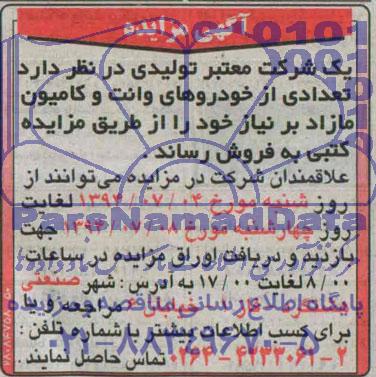 آگهی مزایده
یک شرکت معتبر تولیدی در نظر دارد
تعدادی از خودروهای وانت و کامیون
مازاد بر نیاز خود را از طریق مزایده
کتبی به فروش رساند .
علاقمندان شرکت در مزایده می‌توانند از
روز شنبه مورخ ۱۳۹۴/۰۷/۰۴ لغایت
روز چهارشنبه مورخ ۱۳۹۴/۰۷/۰۸ جهت
بازدید و دریافت اوراق مزایده در ساعات
۸/۰۰ لغایت ۱۷/۰۰ به آدرس : شهر صنعتی
مراجعه و یا
برای کسب اطلاعات بیشتر با شماره تلفن :
تماس حاصل نمایند .
ParsNamadData
پایگاه اطلاع رسانی مناقصه و مزایده
۰۲۱-۸۸۳۴۹۶۷۰-۵